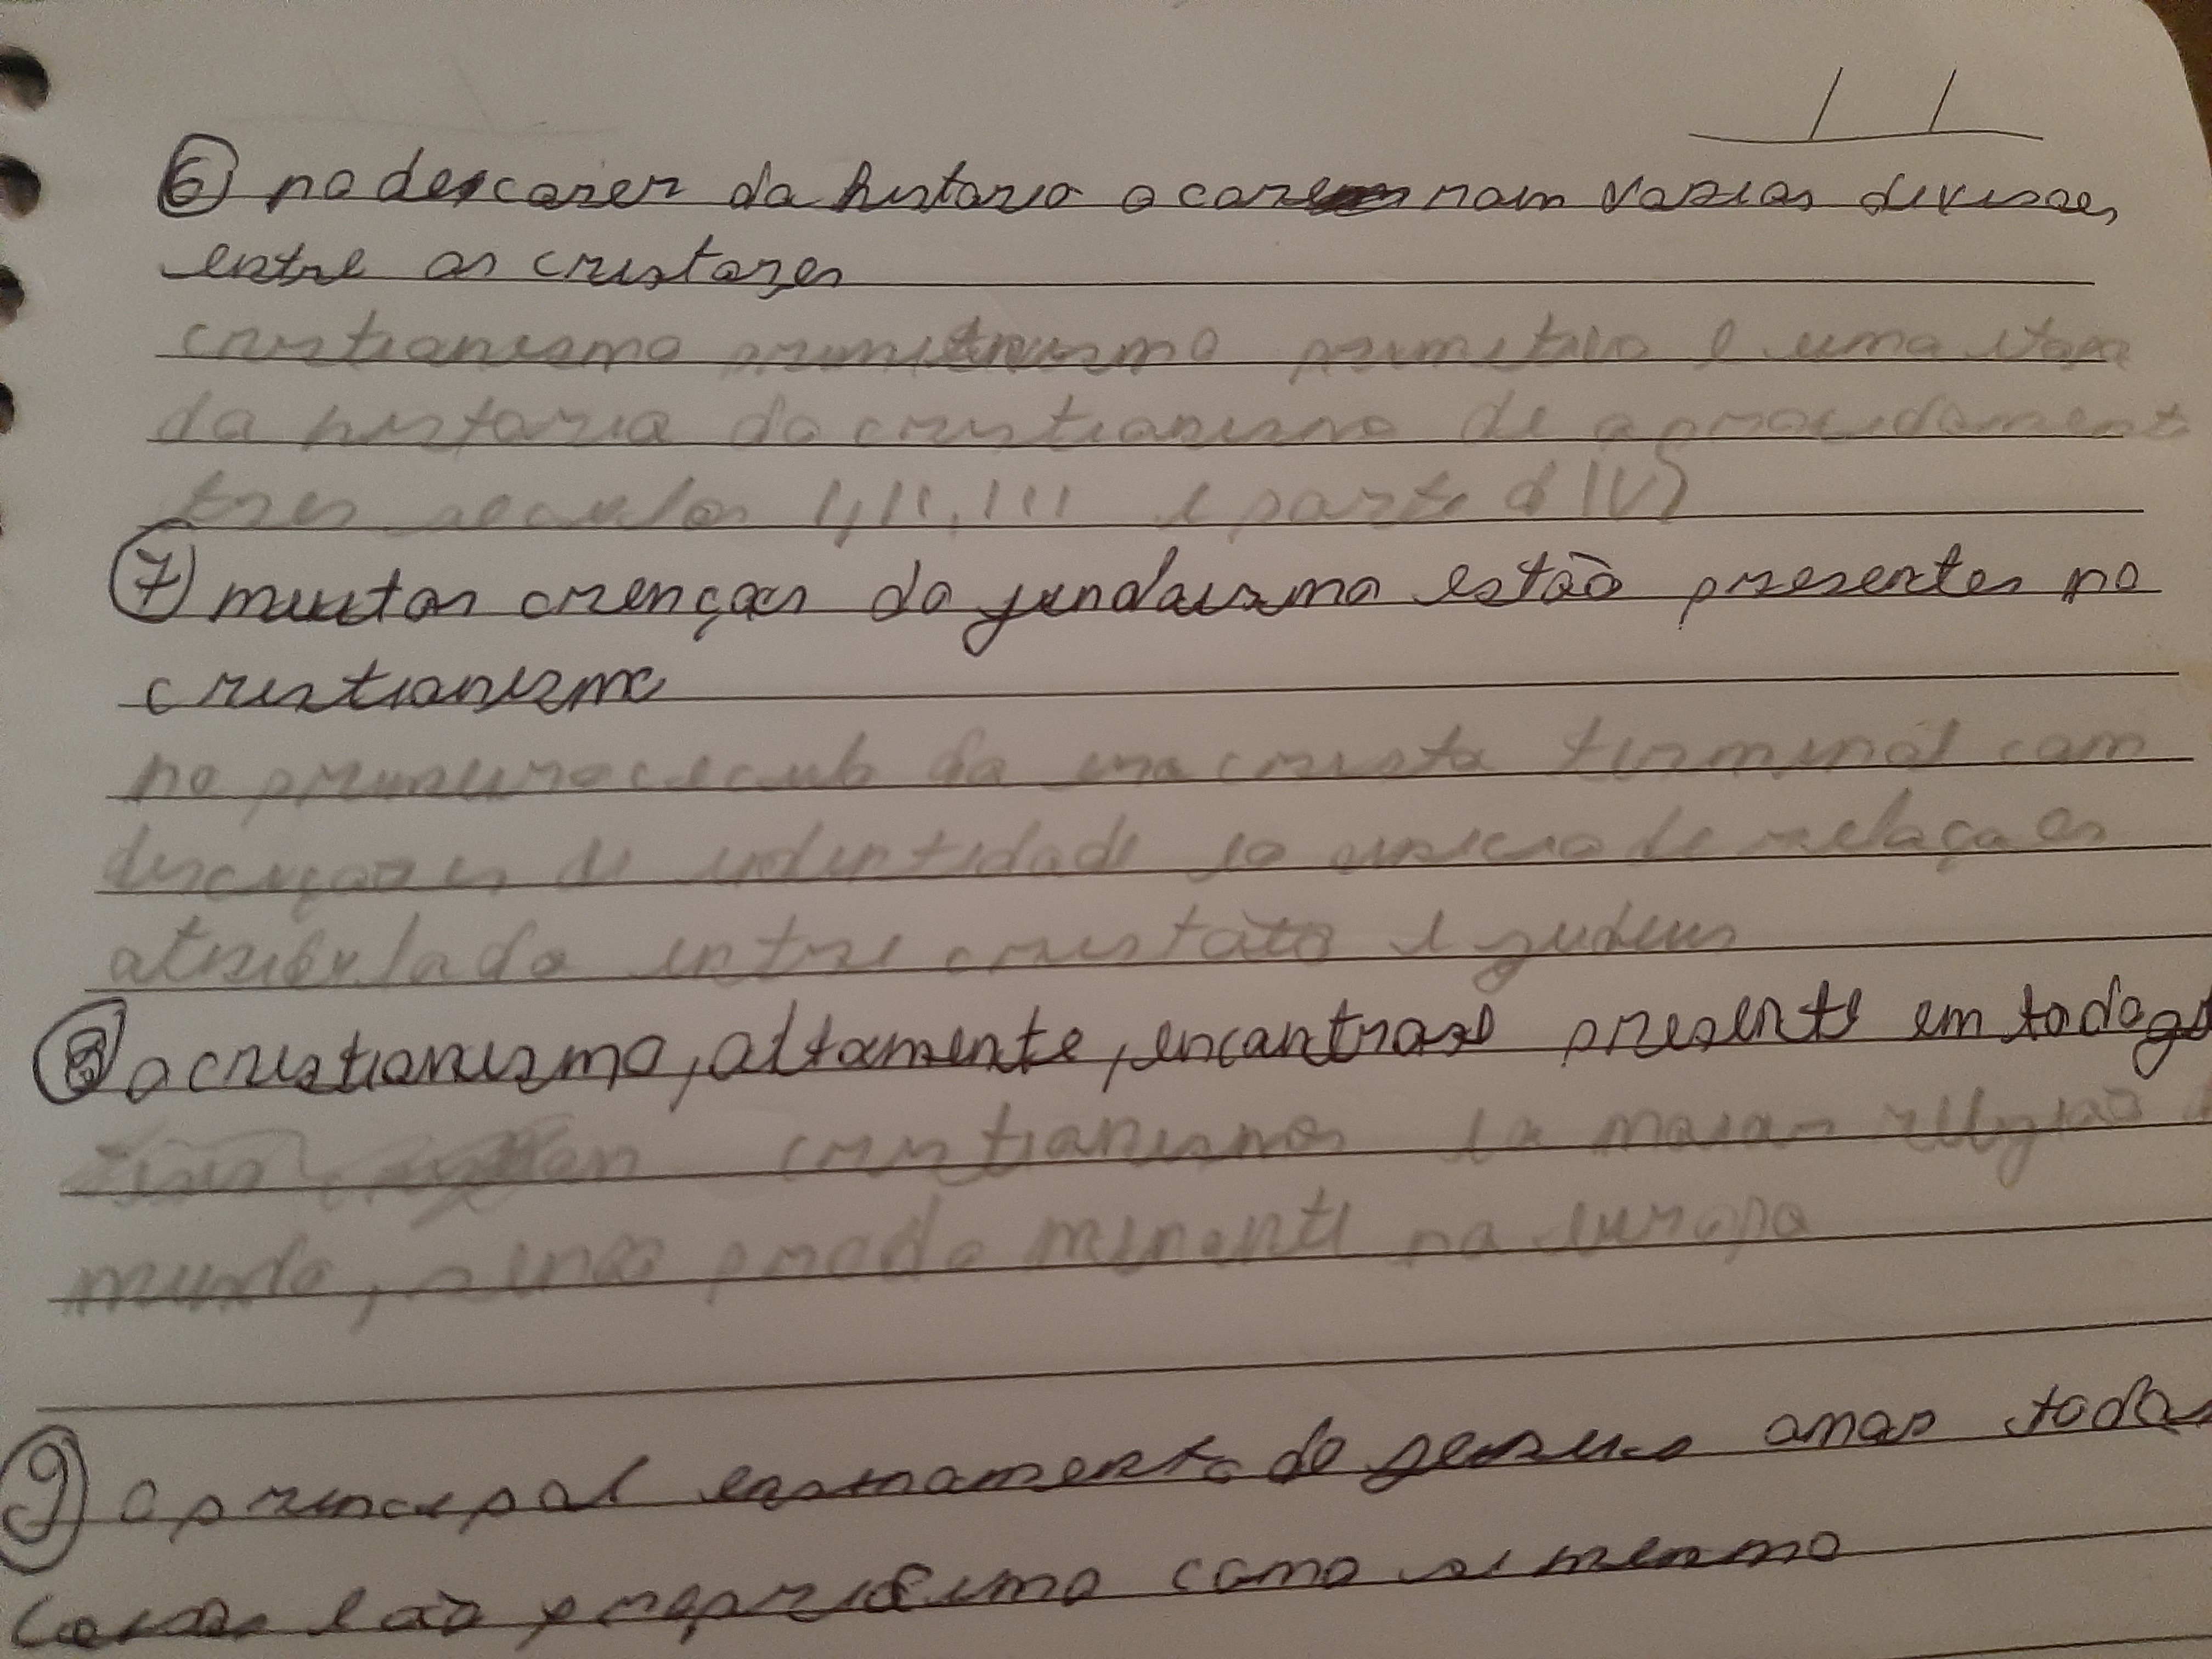 6) no decorrer da historia ocorreram varias divisoes
entre os cristãoes
cristianismo primitivo e uma etapa
da historia do cristianismo de aproxidament
tres seculos I, II, III e parte d IV)
7) muitas crenças do jundaismo estão presentes no
cristianismo
no primeiro ceculo da era crista terminol com
discuçoes de indentidade eo inicio de relaçoes
atribulado entre cristão e judeus
8) o cristianismo, altamente, encontrase presente em todo gl
cristianismo e a maior religião
mundo, sendo predominente na europa
9) o principal ensinamento de jesus amar todas
coisas e ao proprissimo como si mesmo